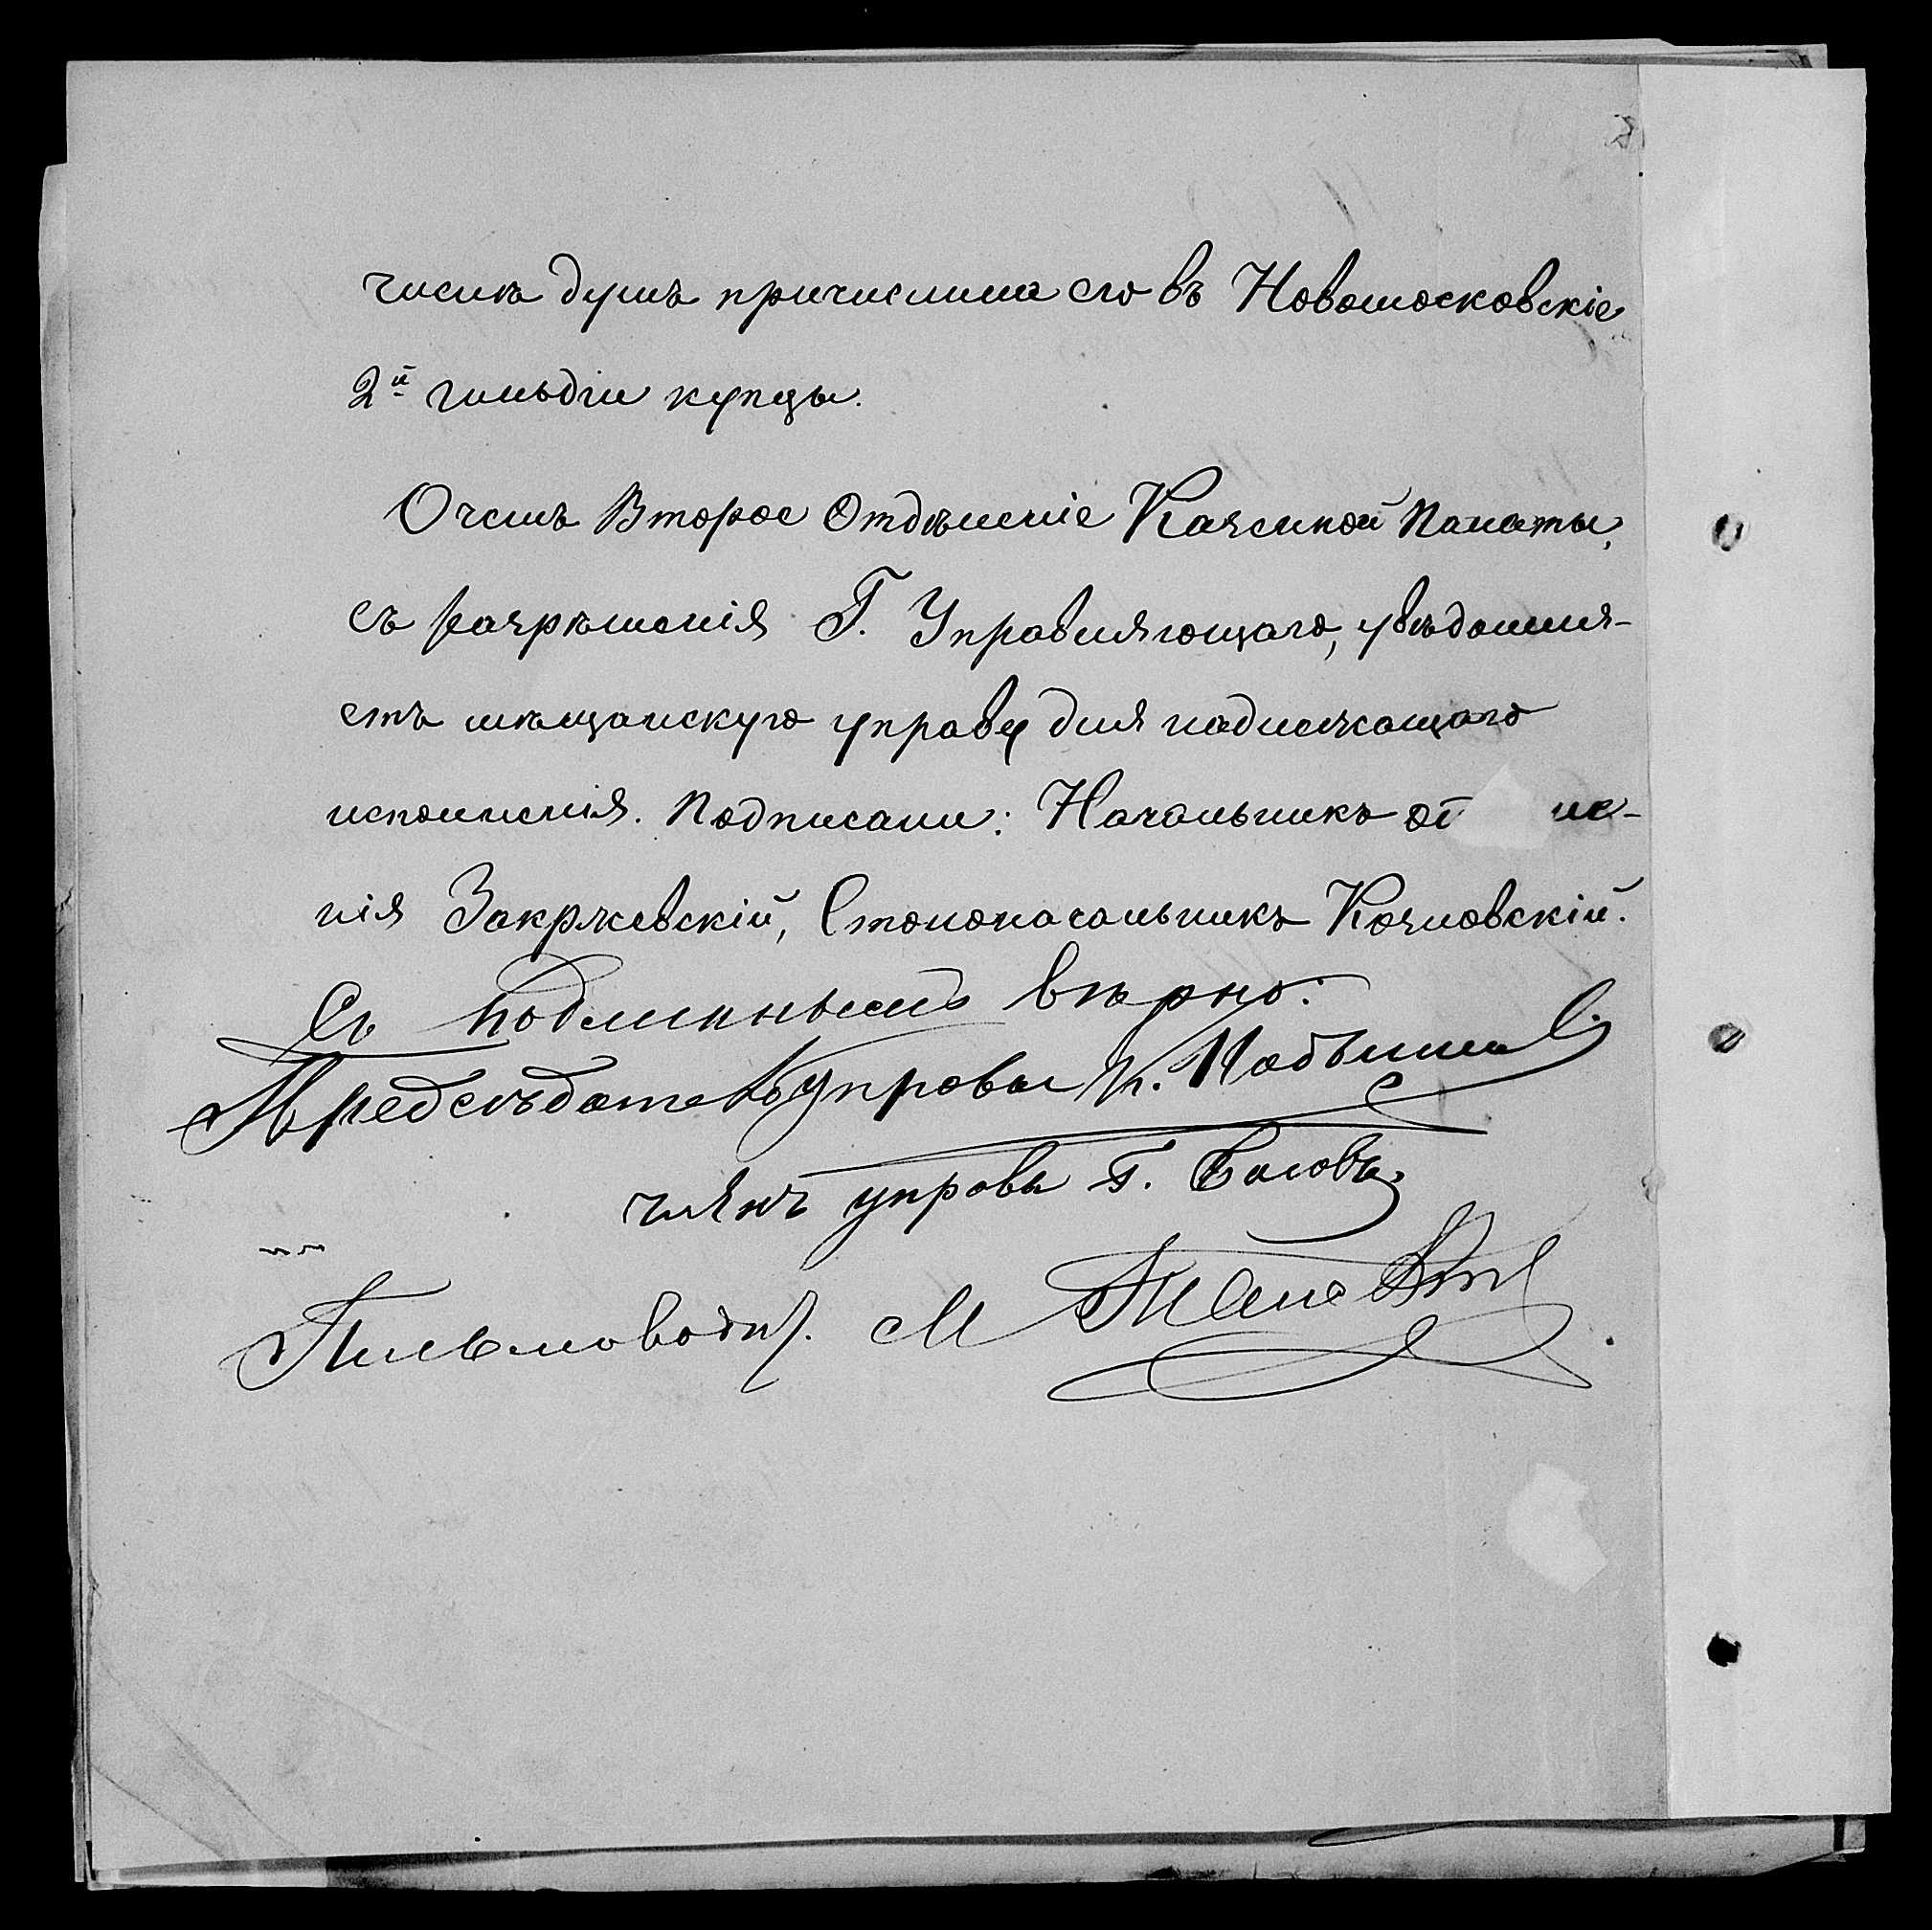 числѣ душъ причислила его въ Новомосковскіе
2й гильдіи купцы.
О чемъ Второе Отдѣленіе Казенной Палаты,
съ разрѣшенія Г. Управляющаго, увѣдомля-
етъ мѣщанскую управу для надлежащаго
исполненія. Подписали: Начальникъ от ле-
нія Закржевскій, Столоначальникъ Козловскій.
Съ подлиннымъ вѣрно:
Предсѣдатель управы
членъ управы Г.
Письмовод. М